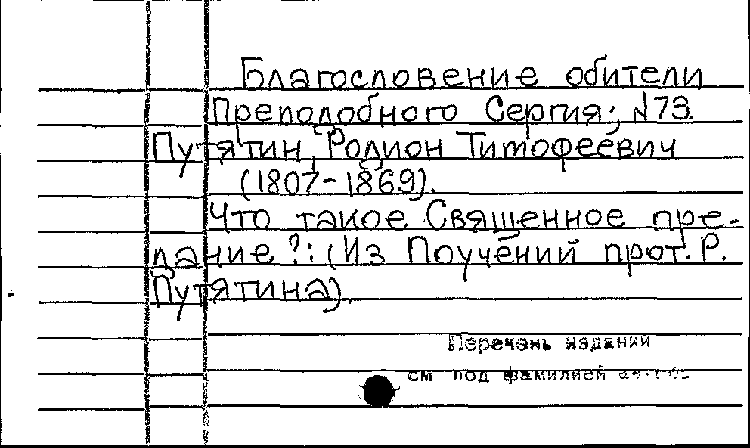 Благословение обители
Преподобного Сергия; №73.
Путятин, Родион Тимофеевич
(1807-1869).
Что такое Священное пре-
дание?: (Из Поучений прот. Р.
Путятина).
Перечень изданий
см под фамилией